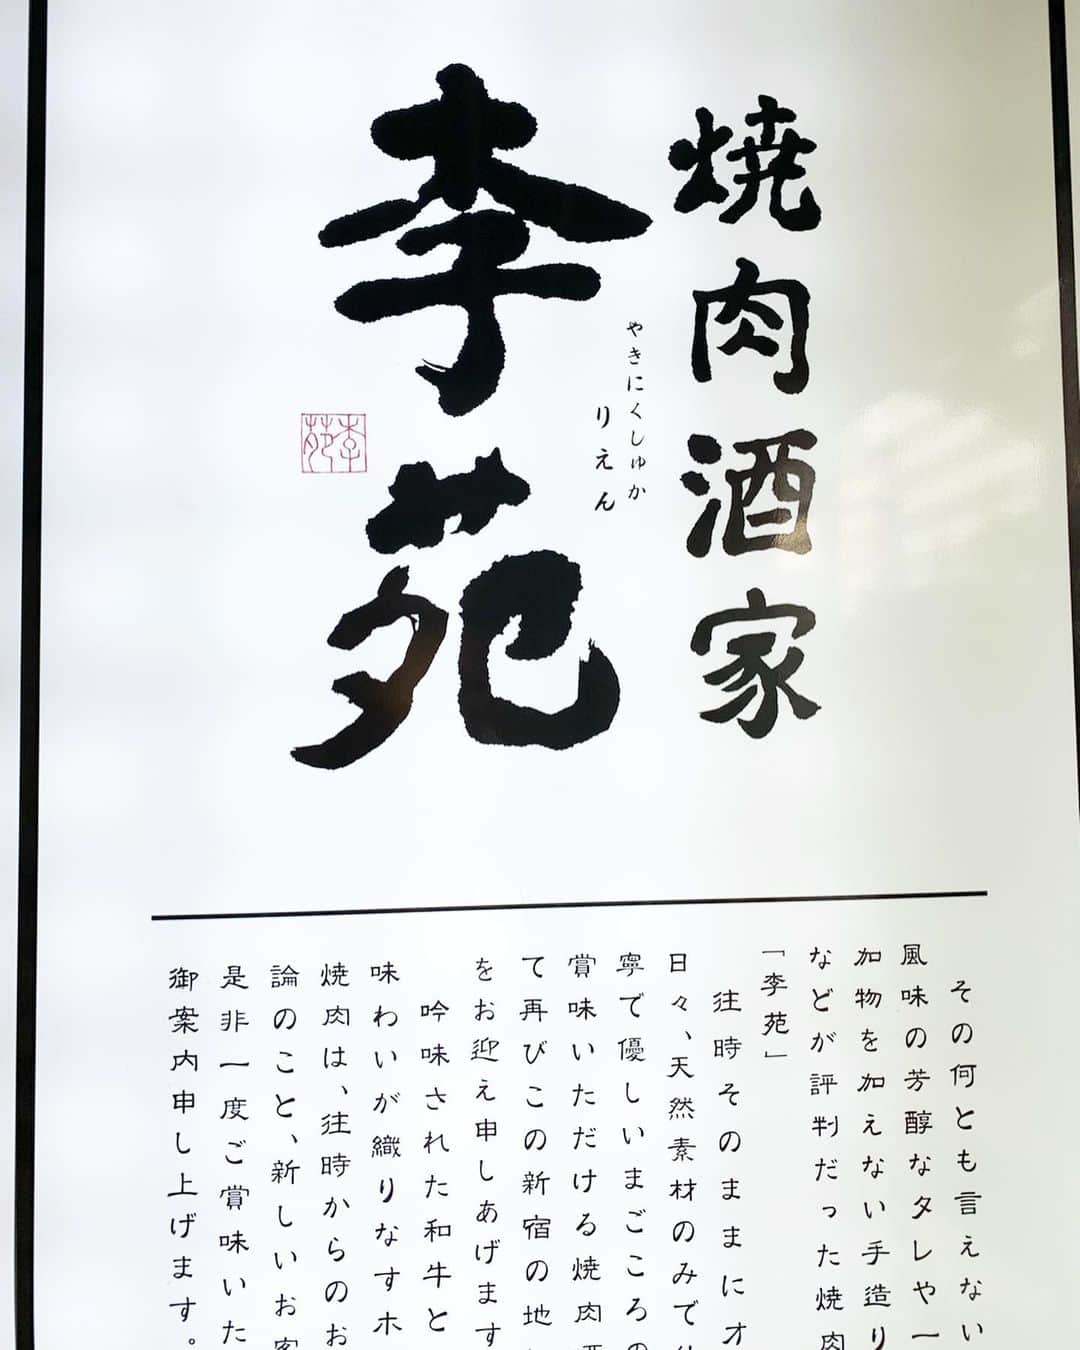 焼肉酒家
やきにくしゅか
りえん
李苑
李苑
その何とも言えない
風味の芳醇なタレや一
加物を加えない手造り
などが評判だった焼肉
「李苑」
往時そのままにオ
日々、天然素材のみで
寧で優しいまごころの
賞味いただける焼肉酒
て再びこの新宿の地
をお迎え申しあげます
吟味された和牛と
味わいが織りなすホ
焼肉は、往時からのお
論のこと、新しいお客
是非一度ご賞味いた
御案内申し上げます。